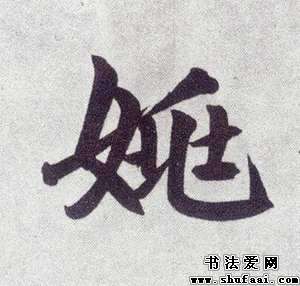 姚
书法爱网
www.shufaai.com